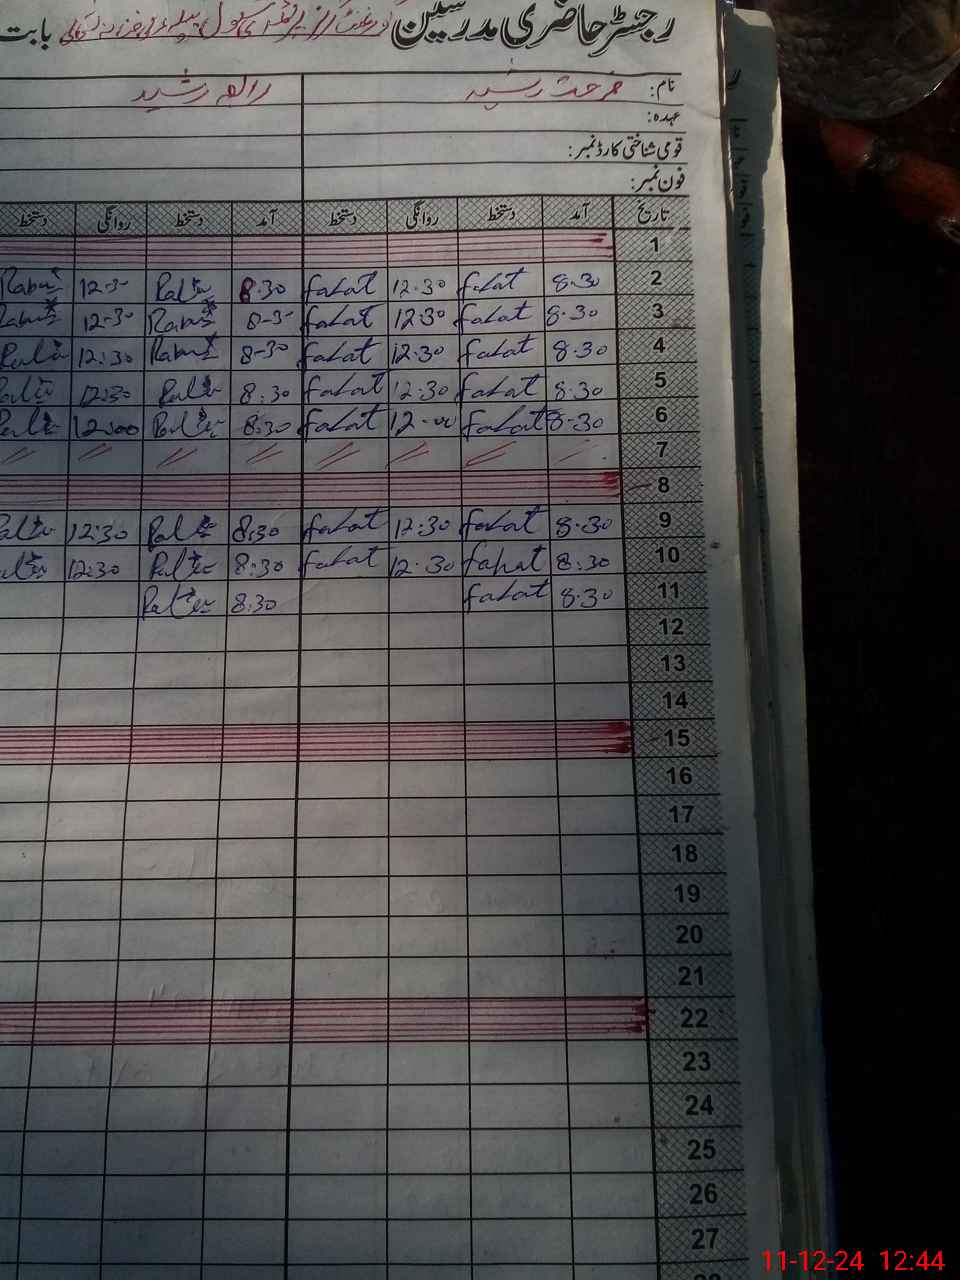 رجسٹر حاضری مدرسین گورنمنٹ گرلز پرائمری سکول بابت
نام: فرحت رشید رابعہ رشید
عہدہ:
قومی شناختی کارڈ نمبر:
فون نمبر:
تاریخ آمد دستخط روانگی دستخط آمد دستخط روانگی دستخط
1
2 8.30 fahat 12.30 fahat 8.30 Rabia 12-3- Rabia
3 8.30 fahat 12.30 fahat 8-3- Rabia 12-30 Rabia
4 8.30 fahat 12.30 fahat 8-30 Rabia 12:30 Rabia
5 8.30 fahat 12.30 fahat 8.30 Rabia 12:30 Rabia
6 8-30 fahat 12-00 fahat 8.30 Rabia 12:00 Rabia
7
8
9 8.30 fahat 12.30 fahat 8.30 Rabia 12:30 Rabia
10 8.30 fahat 12.30 fahat 8.30 Rabia 12:30 Rabia
11 8.30 fahat 8.30 Rabia
12
13
14
15
16
17
18
19
20
21
22
23
24
25
26
27
11-12-24 12:44